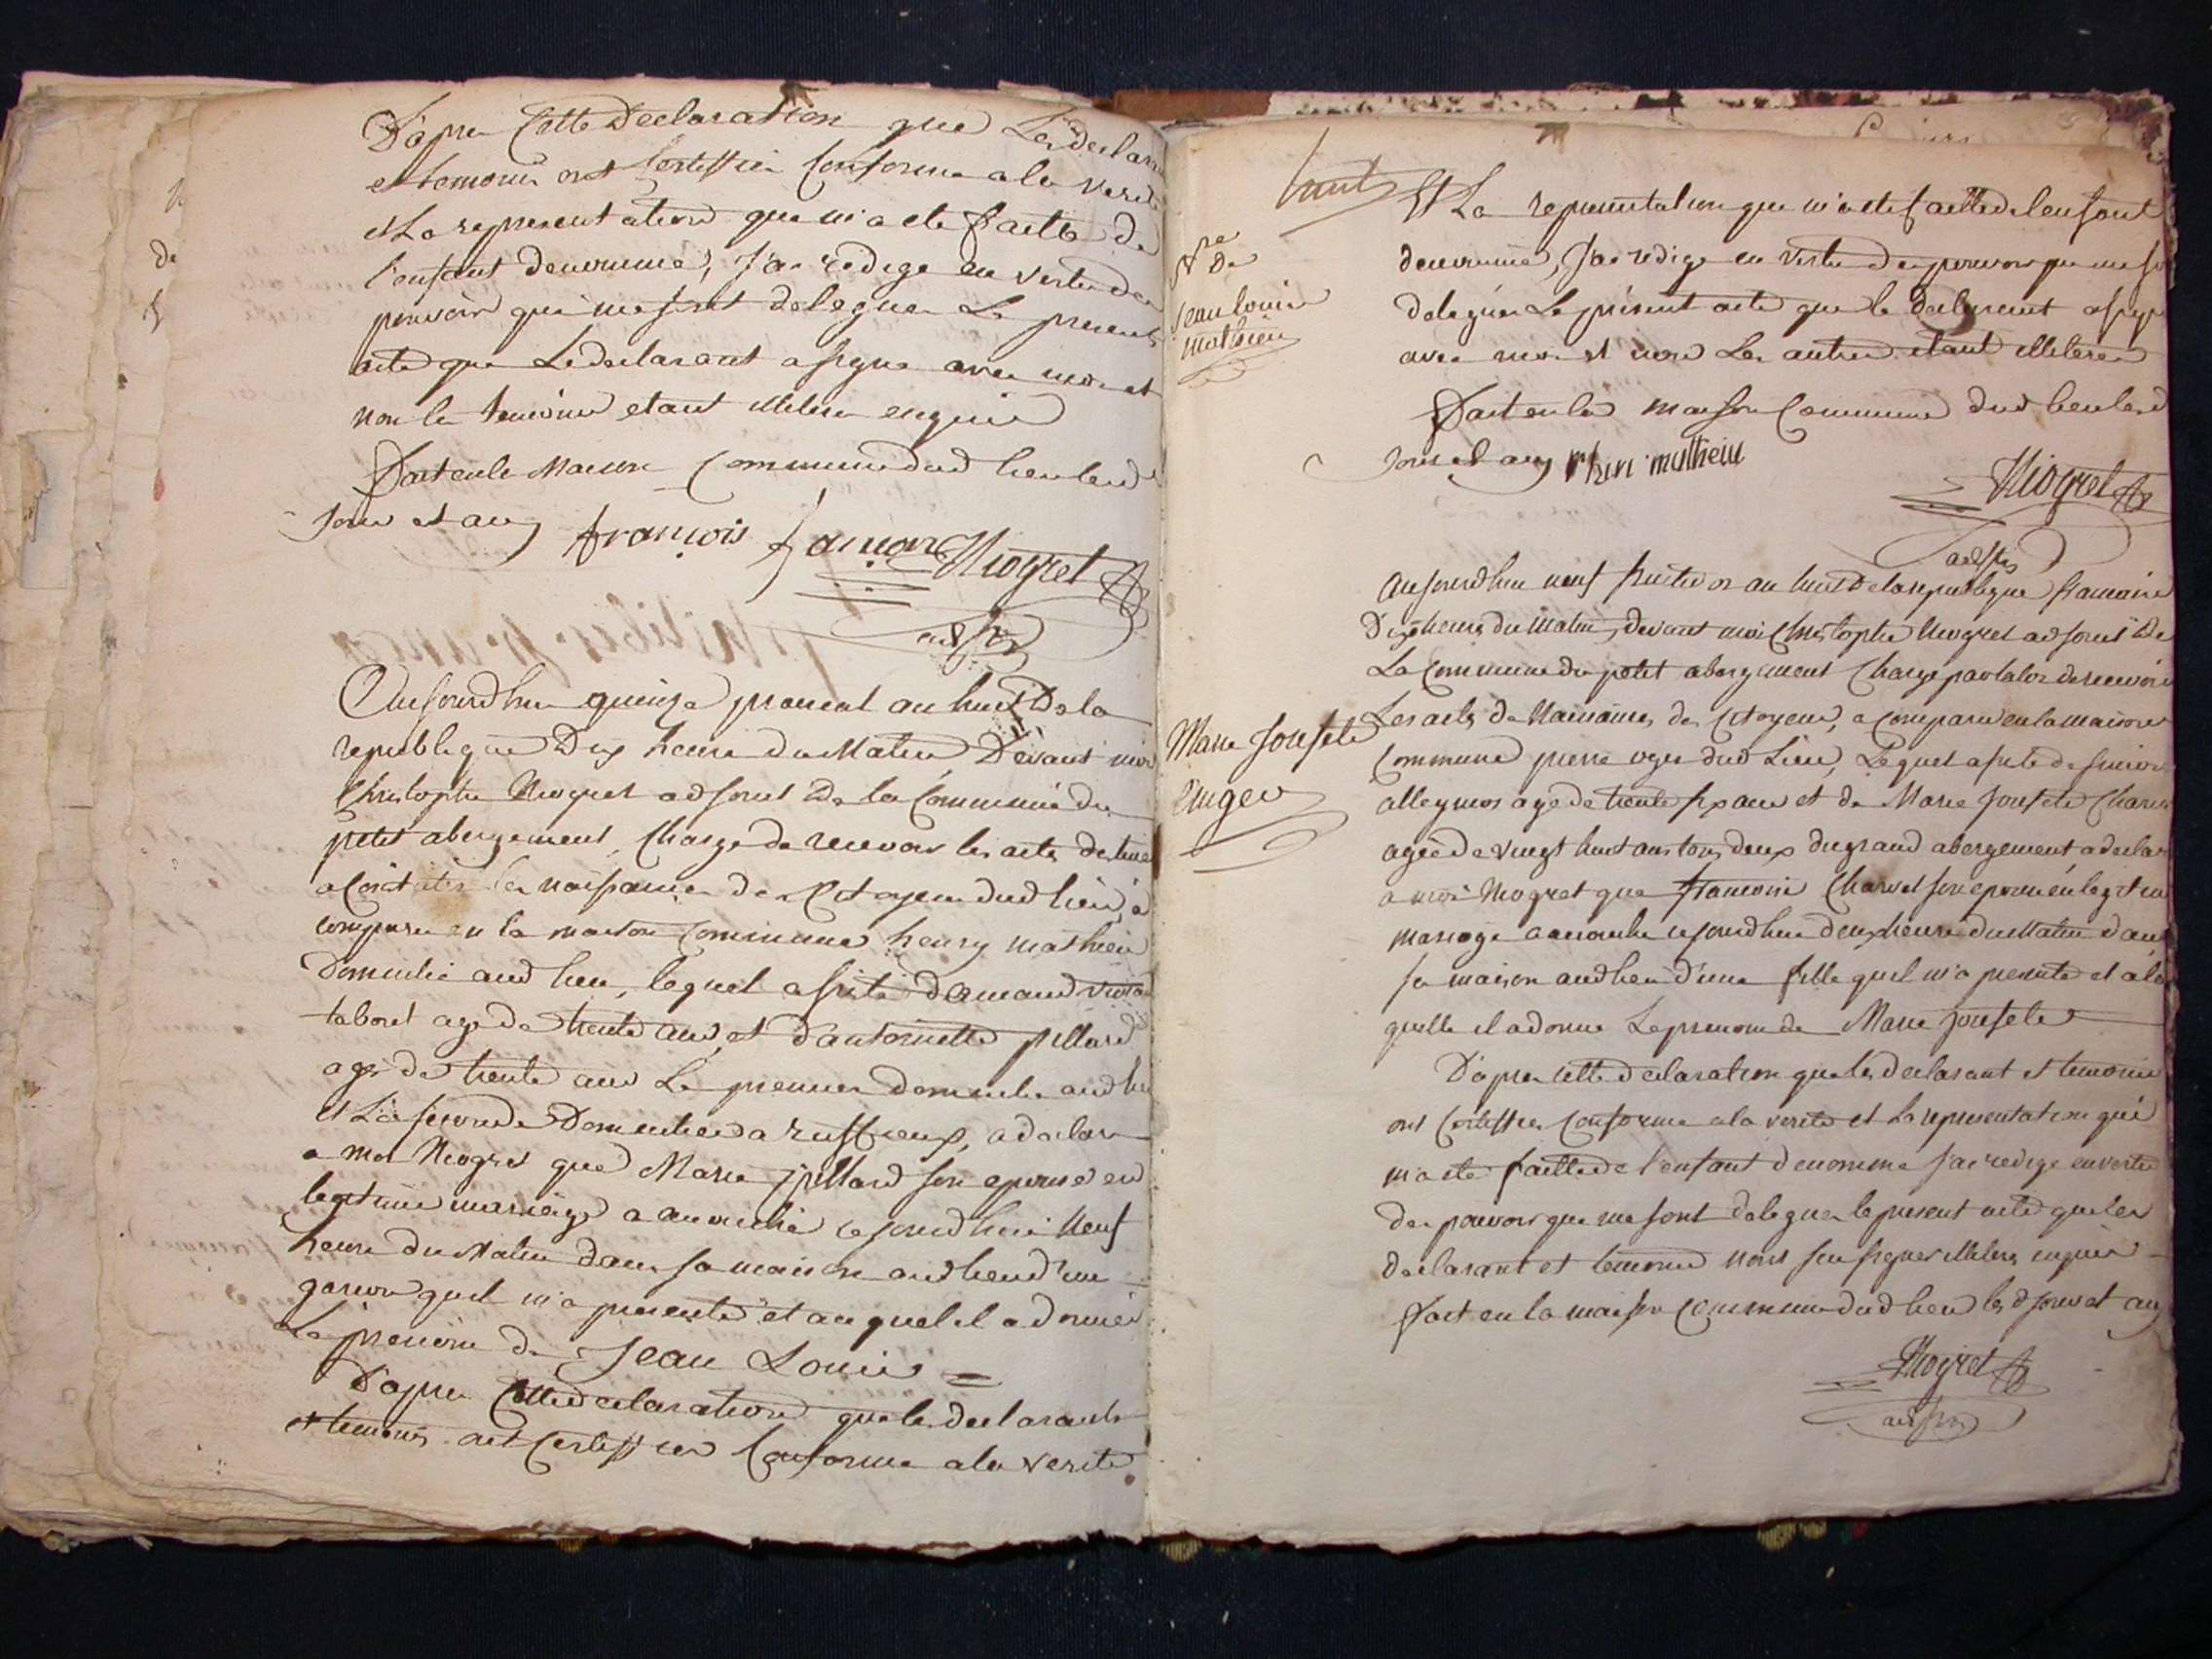 D'apres cette declaration que les declar
et temoins ont certiffiés conforme a la verité
et la representation que m'a eté faitte de
l'enfant denommé, j'ai redigé en vertu des
pouvoirs qui me sont delegués le present
acte que le declarant a signé avec moi et
non les temoins etant illitérés enquis
Fait en la maison commune dud lieu lesd
jours et an françois Niogret
adjt
Aujourd'hui quinze prairial an huit de la
republique dix heures du matin devant moi
Christophe Niogret adjoint de la commune du
petit abergement, chargé de recevoir les actes destinés
a constater les naissances des citoyens dud lieu, a
comparu en la maison commune henry mathieu
domicilié aud lieu, lequel assisté d'Armand
taboret agé de trente ans, et d'antoinette pillard
agé de trente ans le premier domicilié aud lieu
et la seconde domiciliée a ruffieux, a declaré
a moi Niogret que Marie pillard son epouse en
legitime mariage a accouché cejourd'hui neuf
heures du matin dans sa maison aud lieu d'un
garcon quil m'a presenté et au quel il a donné
le prenom de Jean Louis =
D'apres cette declaration que les declarants
et temoins ont certiffiés conforme a la verité
huit
Nce De
jean louis
mathieu
Et la representation que m'a eté faitte de l'enfant
denommé, j'ai redigé en vertu des pouvoirs qui me so
delegués le présent acte que le declarant a signé
avec moi et non les autres etant illiterés
Fait en la maison commune dud lieu lesd
jours et an henri mathieu
Niogret
adjt
Marie Josephte
Auger
Aujourd'hui neuf fructidor an huit de la republique francoise
Dix heures du matin, devant moi Christophe Niogret adjoint de
La commune du petit abergement chargé par la loi de recevoir
Les actes de naissances des citoyens, a comparu en la maison
commune pierre oger dud lieu, lequel assisté de
age de trente six ans et de Marie Josephte Charvet
agée de vingt huit ans tous deux du grand abergement a declaré
a moi Niogret que francoise Charvet son epouse en legitime
mariage a accouché cejourd'hui deux heures du matin dans
sa maison aud lieu d'une fille quil m'a presenté et a la
quelle il a donné le prenom de Marie Josephte
D'apres cette declaration que les declarant et temoins
ont certiffiés conforme a la verité et la representation qui
m'a eté faitte de l'enfant denommé j'ai redigé en vertu
des pouvoirs que me sont delegués le present acte que les
declarant et temoins n'ont seu signer illiterés enquis
Fait en la maison commune dud lieu lesd jours et an
Niogret
adjt